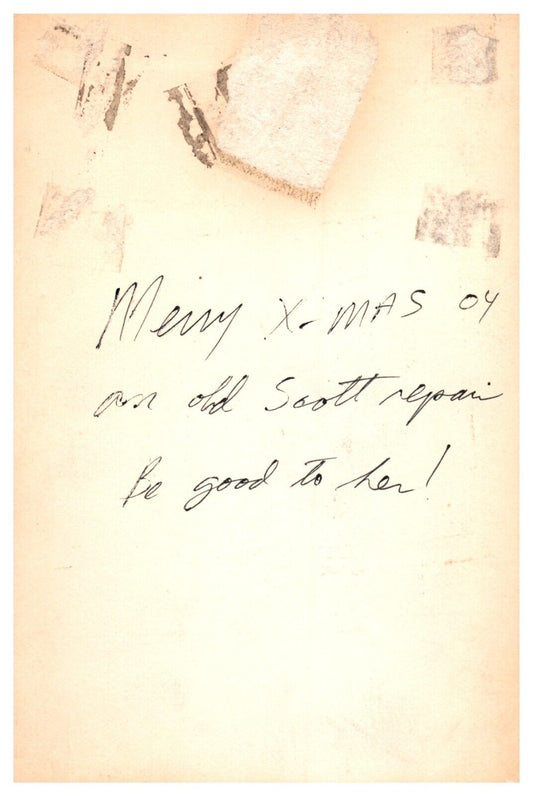 Merry X-MAS 04
an old Scott repair
Be good to her!